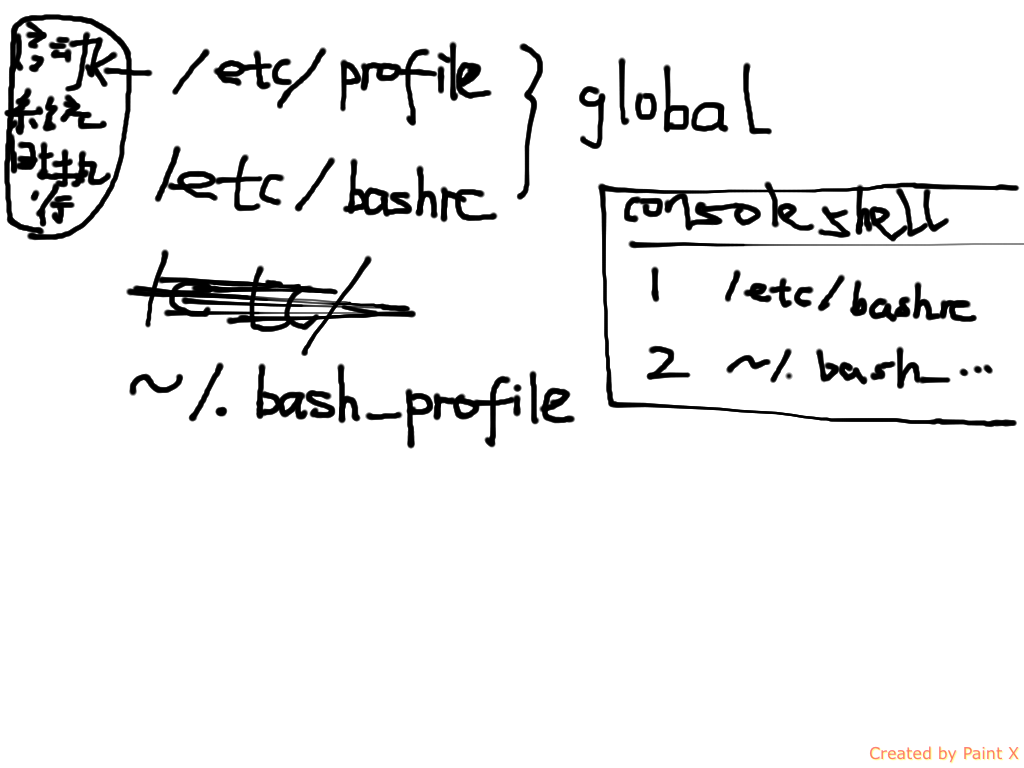 /etc/profile
/etc/bashrc
global
~/.bash_profile
console shell
1 /etc/bashrc
2 ~/.bash_...
Created by Paint X